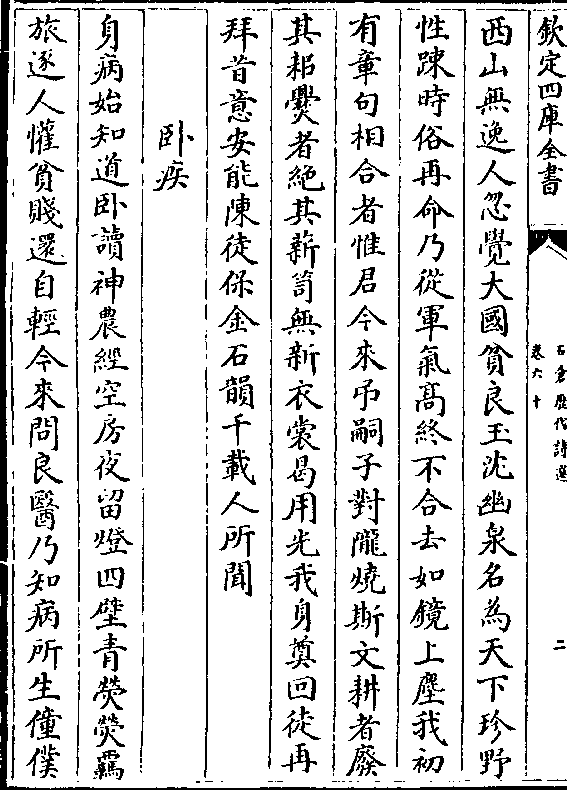 欽定四庫全書
石倉歴代詩選
卷六十
二
西山無逸人忽覺大國貧良玉沈幽泉名為天下珍野
性踈時俗再命乃從軍氣髙終不合去如鏡上塵我初
有章句相合者惟君今來弔嗣子對隴燒斯文耕者廢
其耜爨者絶其薪笥無新衣裳曷用光我身奠回徒再
拜昔意安能陳徒保金石韻千載人所聞
卧疾
身病始知道卧讀神農經空房夜留燈四壁青熒熒羇
旅逐人懽貧賤還自輕今來問良醫乃知病所生僮僕